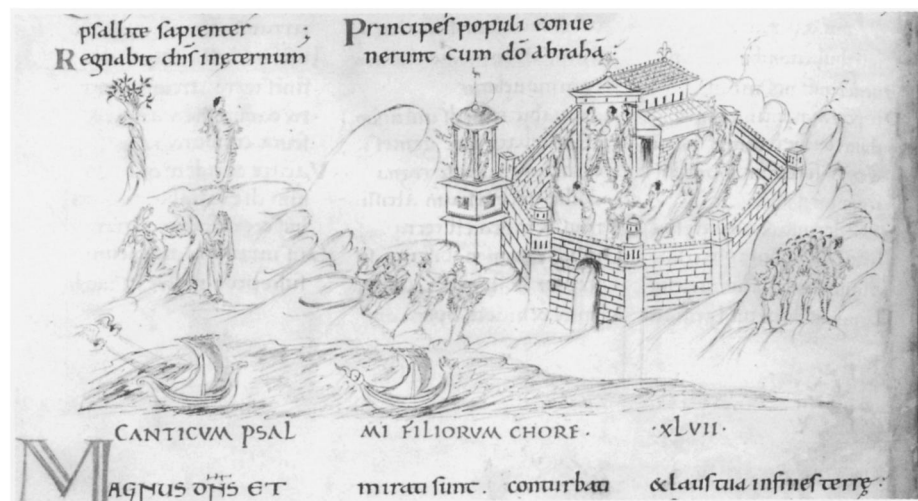 psallite sapienter
Regnabit dn̄s ineternum
Principes populi conue
nerunt cum dō abraha:
CANTICVM PSAL
MI FILIORVM CHORE · ·XLVII·
MAGNUS DN̄S ET
mirati sunt. conturbati
&laus tua infines terrę: